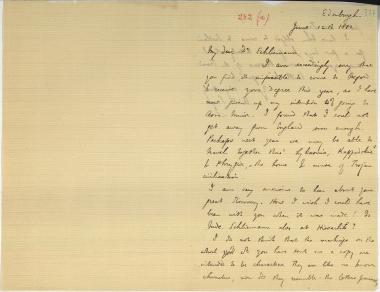 282 (a)
Edinburgh.
June 12th
My dear Dr Schliemann,
I am exceedingly sorry that
you find it impossible to come to Oxford
& receive your degree this year, as I have
given up my intention of going to
Asia Minor. I found that I could not
get away from England soon enough.
Perhaps next year we may be able to
travel together thro'
& Phrygia, the home & source of Trojan
civilisation.
I am very anxious to hear about your
great discovery. How I wish I could have
been with you when it was made! Is
Mrs Schliemann also at Hissarlik?
I do not think that the markings on the
you have sent me a copy are
intended to be characters. They are like no known
characters, nor do they resemble the letters